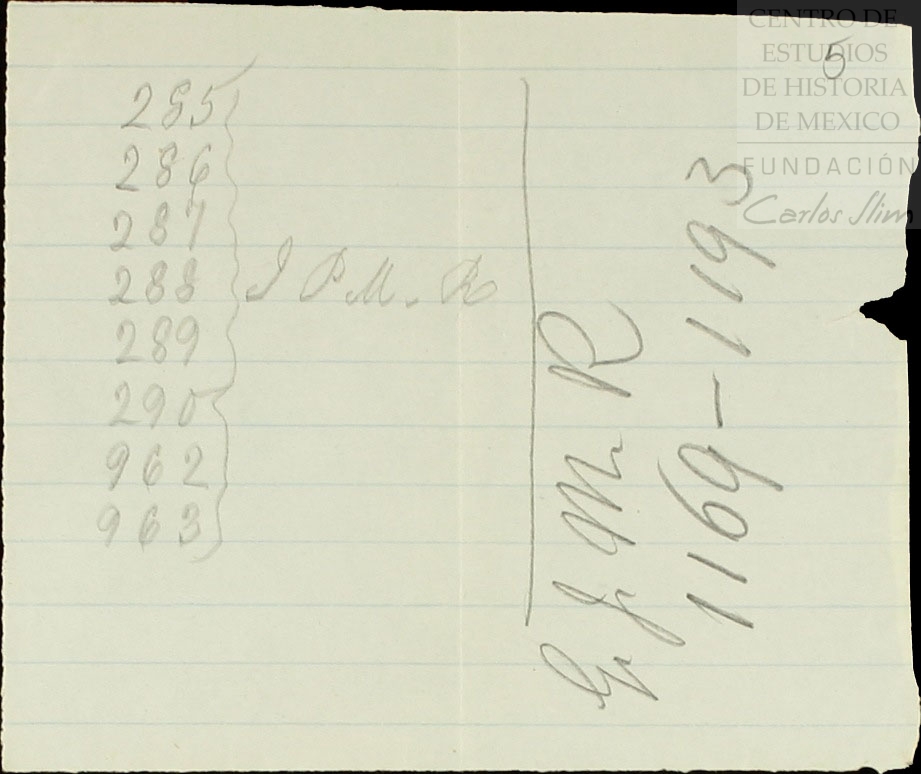 CENTRO DE
ESTUDIOS
DE HISTORIA
DE MEXICO
FUNDACIÓN
Carlos Slim
5
285
286
287
288 J P M. R
289
290
962
963
G J M R
1169-1193